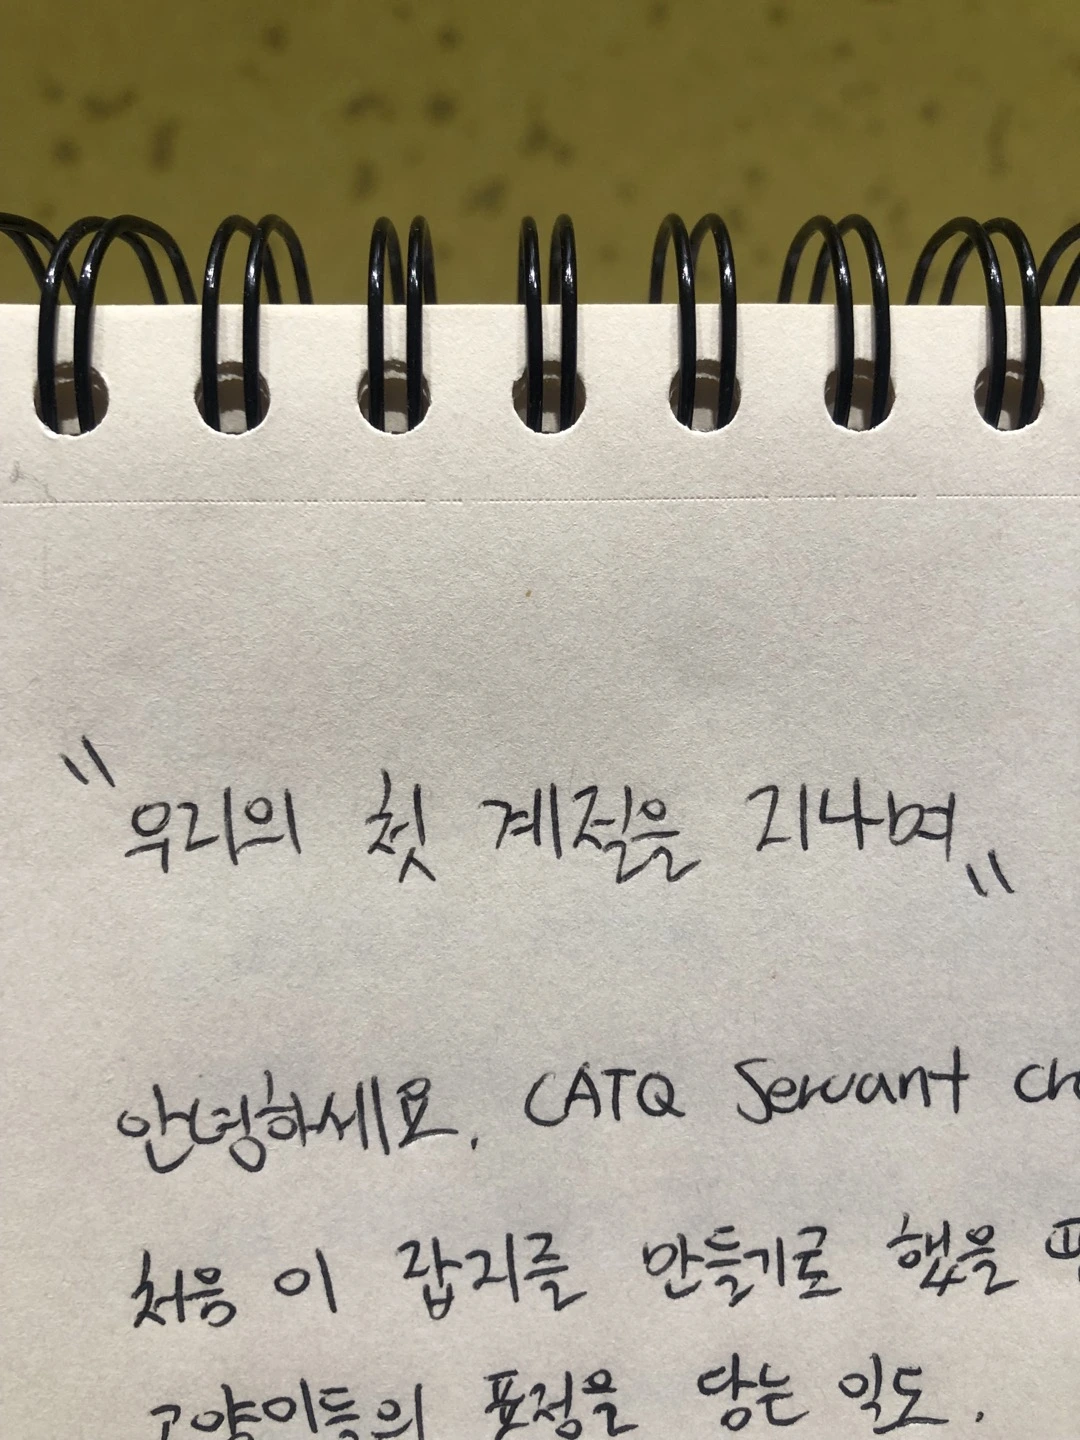 "우리의 첫 계절을 지나며"
안녕하세요. CATQ Servant
처음 이 잡지를 만들기로 했을
고양이들의 표정을 담는 일도.